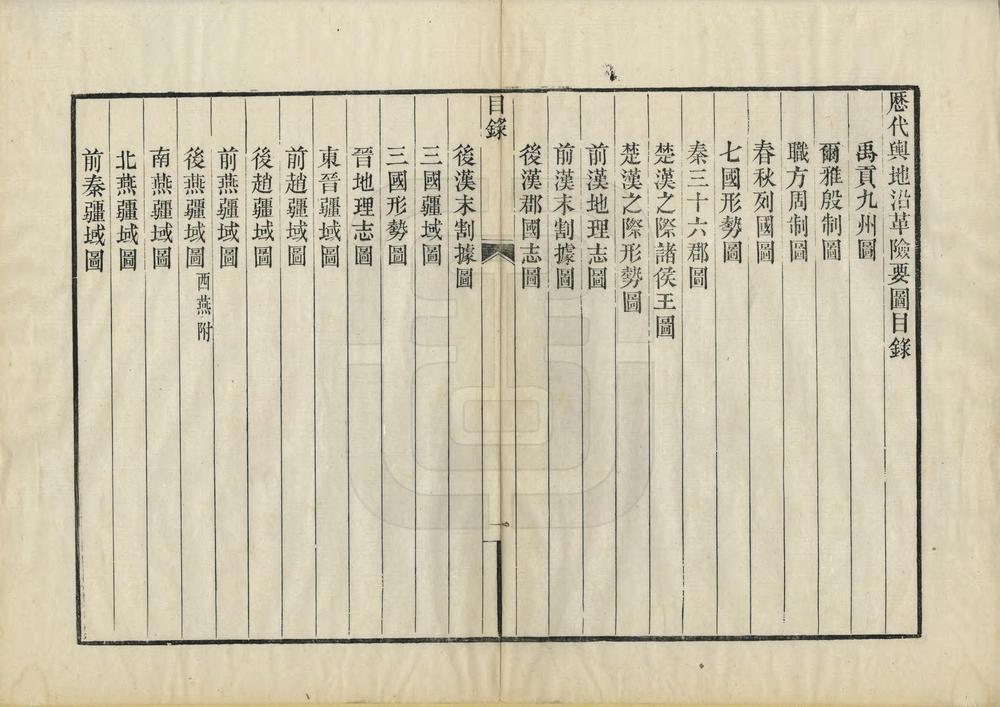 歷代輿地沿革險要圖目錄
禹貢九州圖
爾雅殷制圖
職方周制圖
春秋列國圖
七國形勢圖
秦三十六郡圖
楚漢之際諸侯王圖
楚漢之際形勢圖
前漢地理志圖
前漢末割據圖
後漢郡國志圖
目錄
一
後漢末割據圖
三國疆域圖
三國形勢圖
晉地理志圖
東晉疆域圖
前趙疆域圖
後趙疆域圖
前燕疆域圖
後燕疆域圖 西燕附
南燕疆域圖
北燕疆域圖
前秦疆域圖